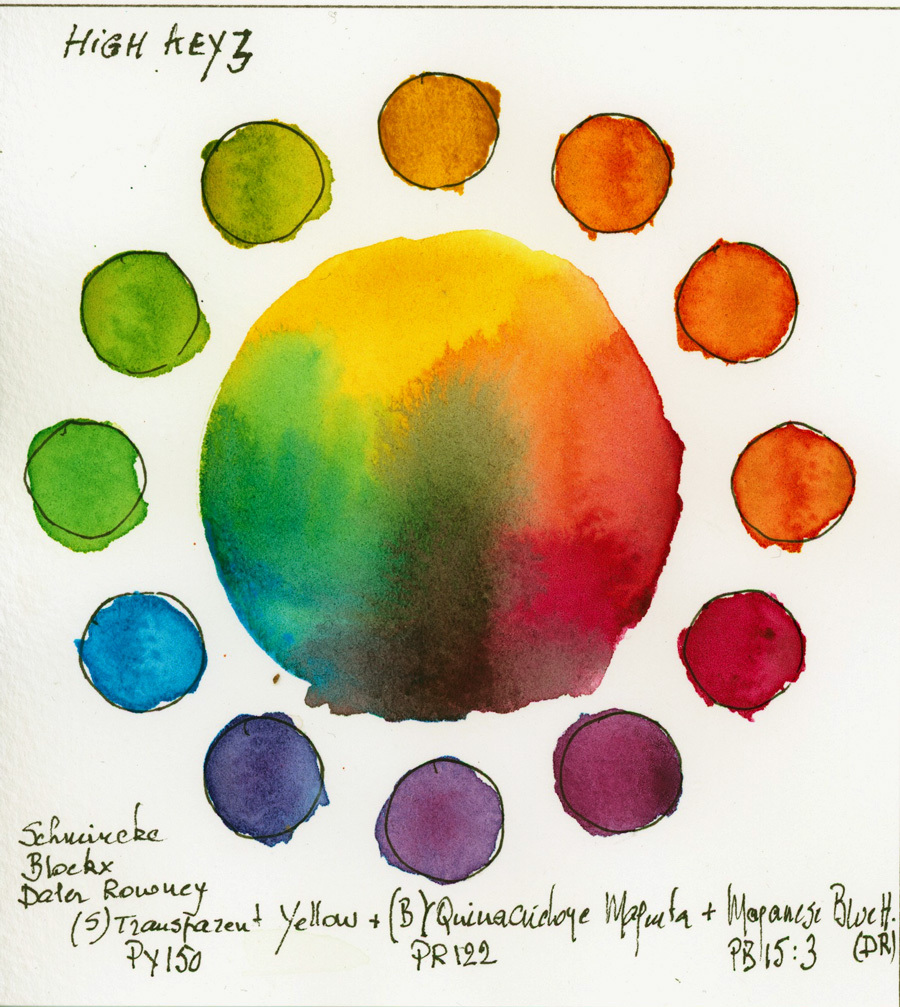 HiGH KEY 3
Schmincke
Blockx
Daler Rowney
(S) Transparent Yellow + (B) Quinacridone Magenta + Maganese Blue H.
PY150 PR122 PB15:3 (DR)